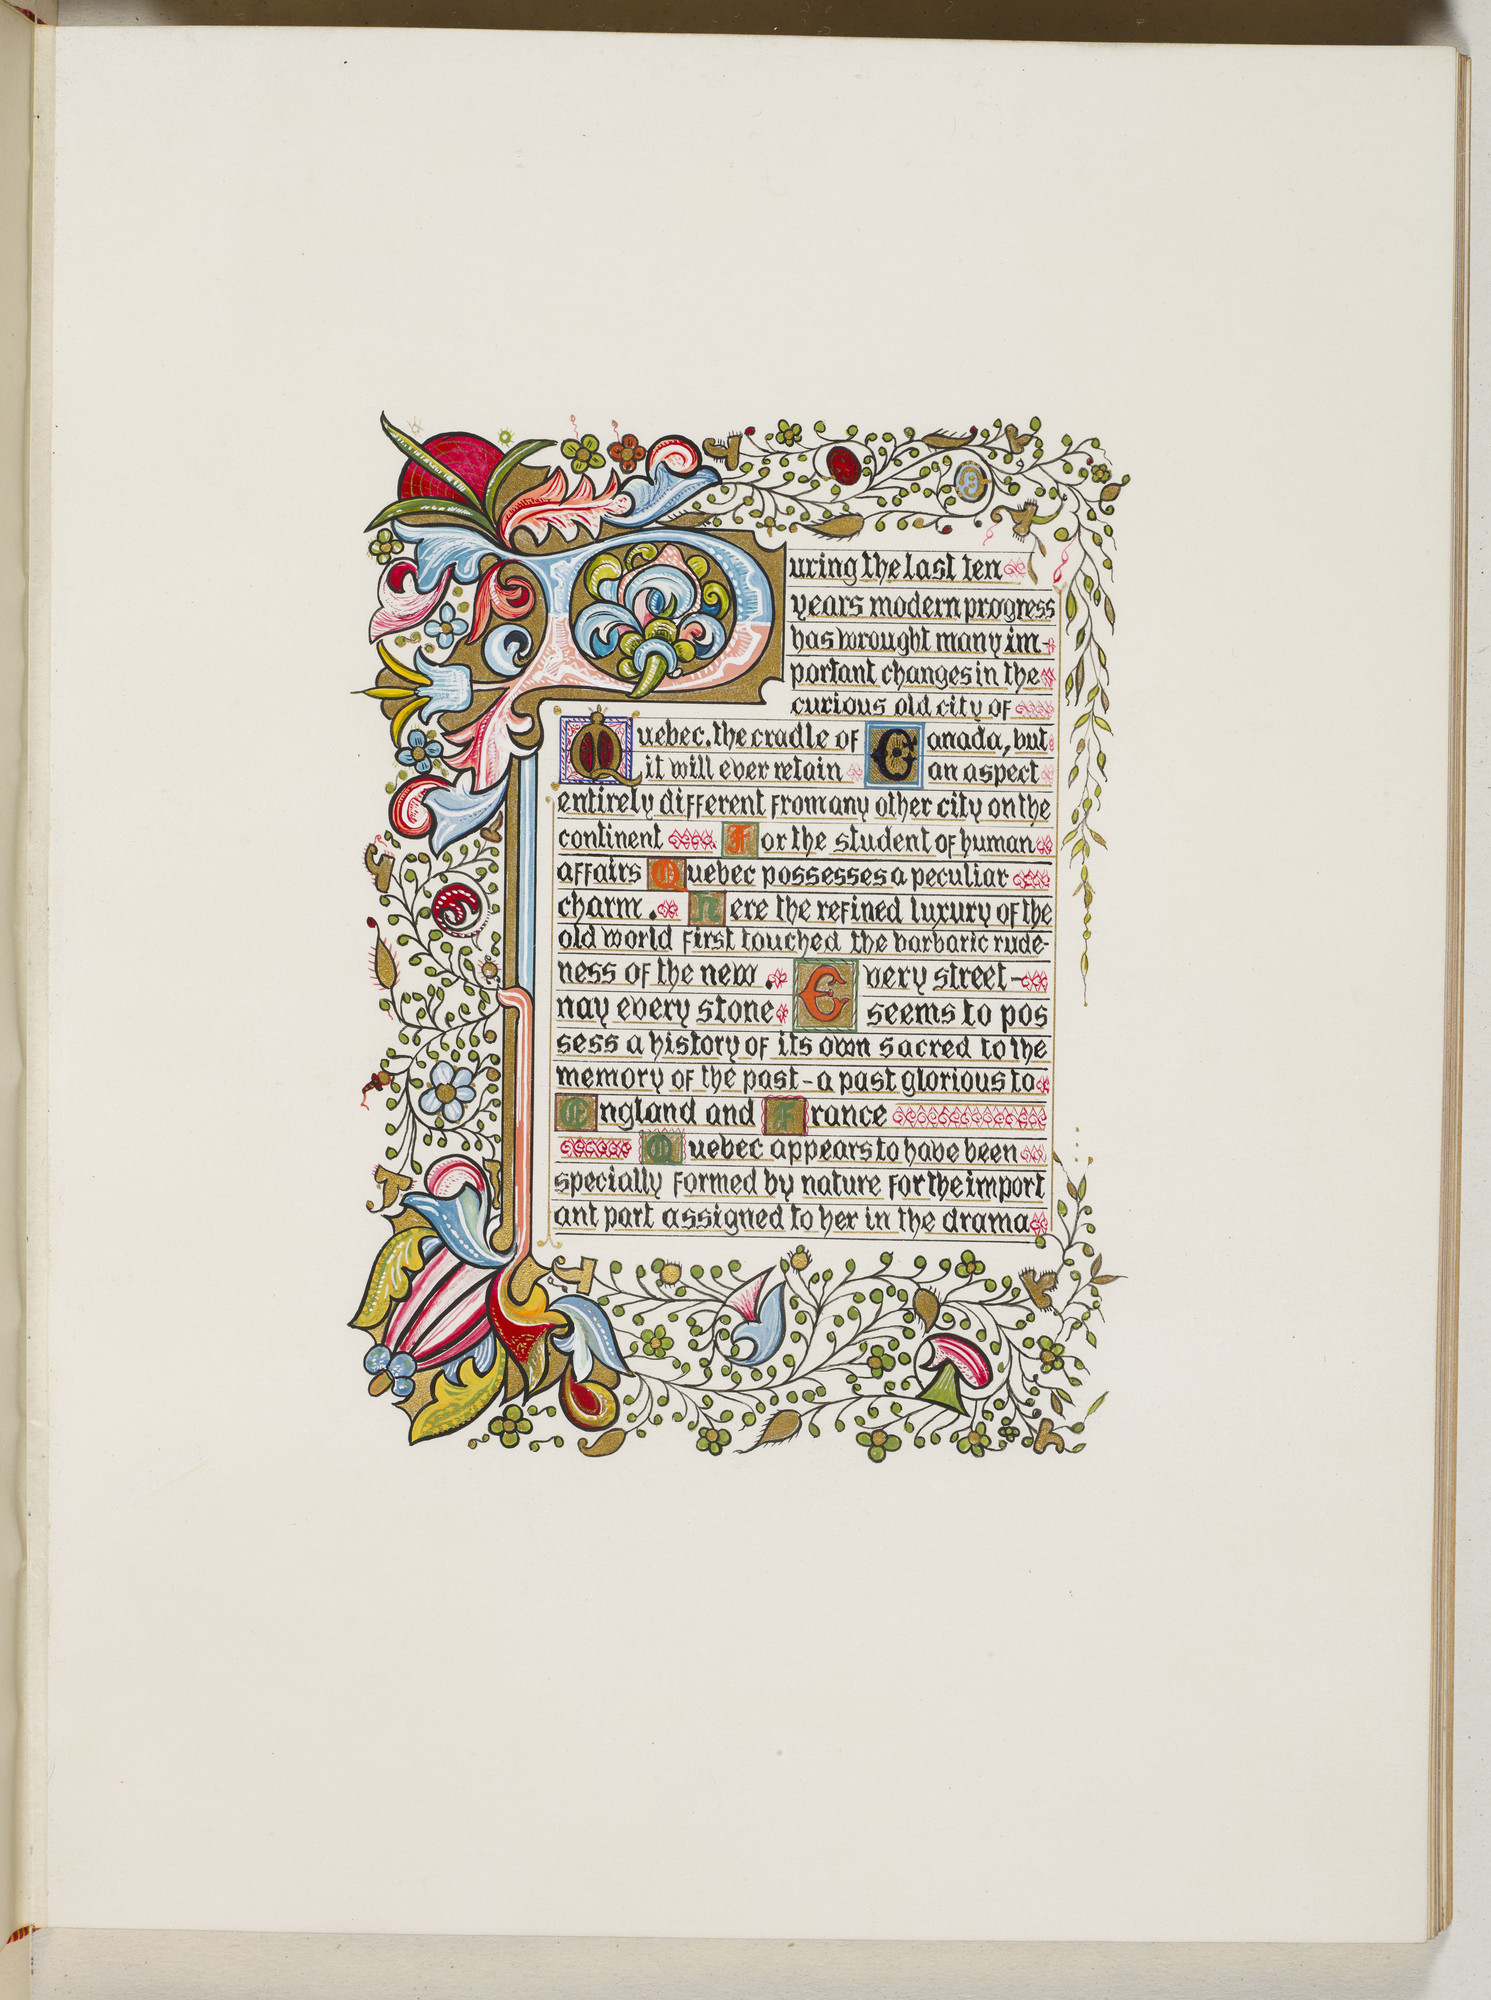 During the last ten
years modern progress
has wrought many im-
portant changes in the
curious old city of
Quebec, the cradle of Canada, but
it will ever retain an aspect
entirely different from any other city on the
continent For the student of human
affairs Quebec possesses a peculiar
charm. Here the refined luxury of the
old world first touched the barbaric rude-
ness of the new. Every street-
nay every stone seems to pos
sess a history of its own sacred to the
memory of the past - a past glorious to
England and France
Quebec appears to have been
specially formed by nature for the import
ant part assigned to her in the drama